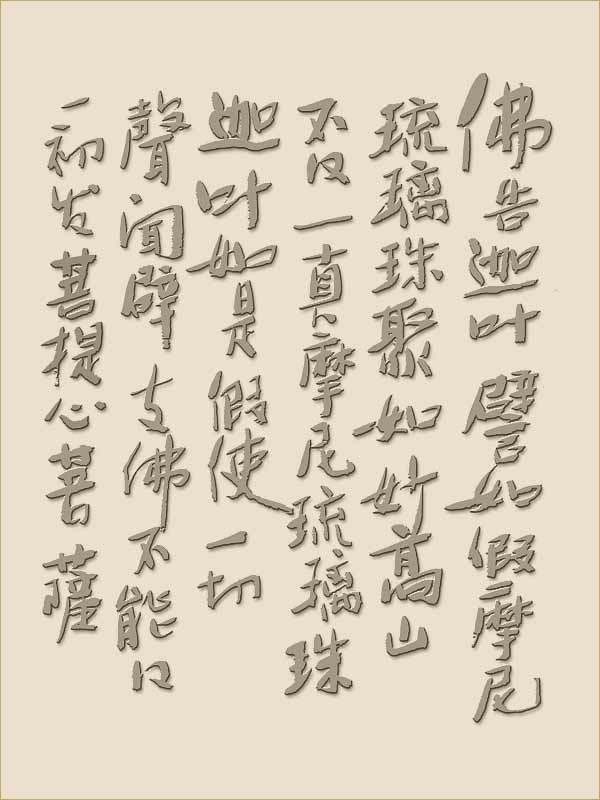 佛告迦叶譬如假摩尼
琉璃珠聚如妙高山
不及一真摩尼琉璃珠
迦叶如是假使一切
聲闻辟支佛不能及
一初发菩提心菩萨